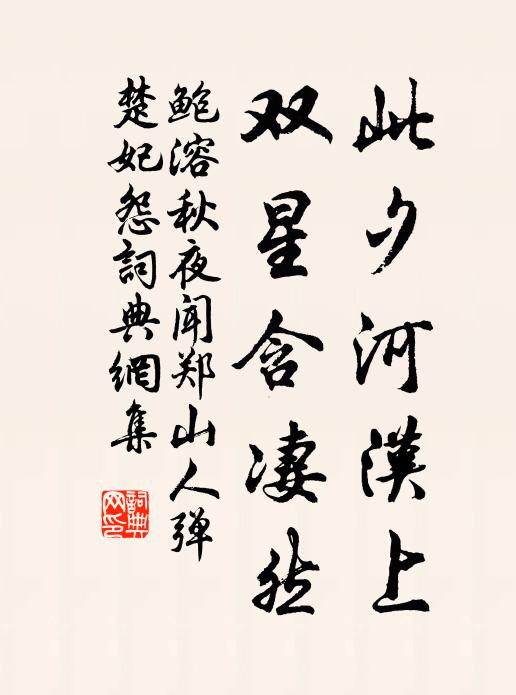 此夕河漢上
双星含凄然
鲍溶秋夜闻郑山人弹
楚妃怨詞典網集
詞典
网印